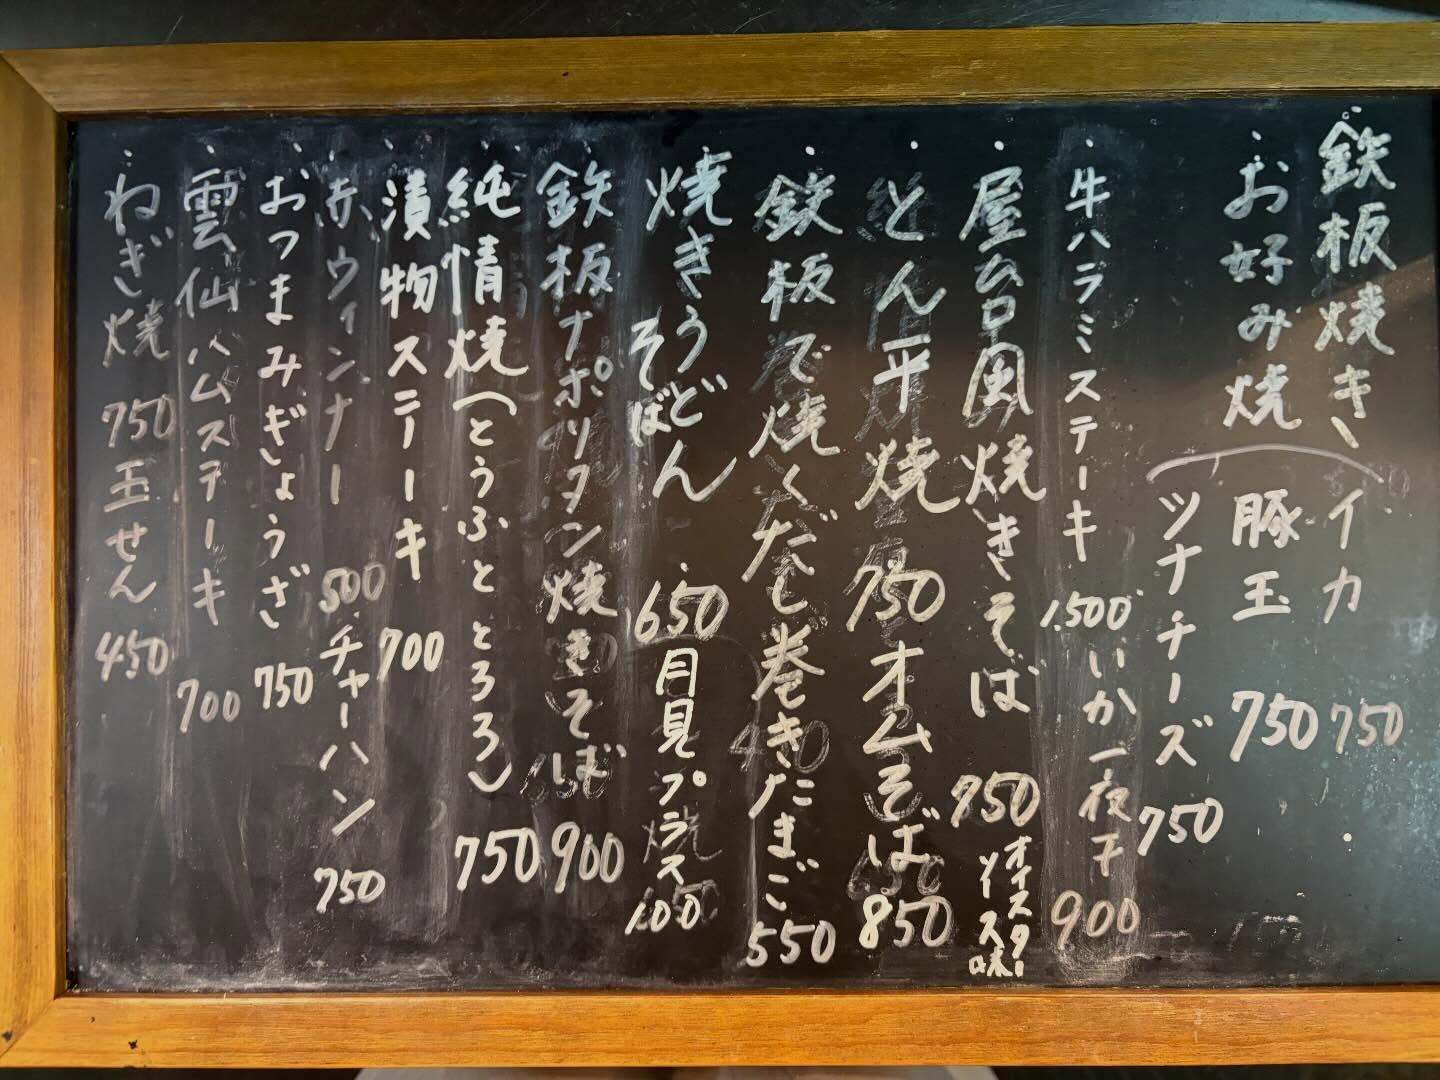 ・鉄板焼き、イカ 750
・お好み焼 豚玉 750
ツナチーズ 750
・牛ハラミステーキ 1.500 いか一夜干 900
・屋台風焼きそば 750 オイスターソース味
・とん平焼 750 オムそば 850
・鉄板で焼くだし巻きたまご 550
・焼きうどん そば ・650 月見プラス 100
・鉄板ナポリタン焼きそば 900
・純情焼(とうふととろろ) 750
・漬物ステーキ 700
・赤ウィンナー 500・チャーハン 750
・おつまみぎょうざ 750
・雲仙ハムステーキ 700
・ねぎ焼 750 玉せん 450